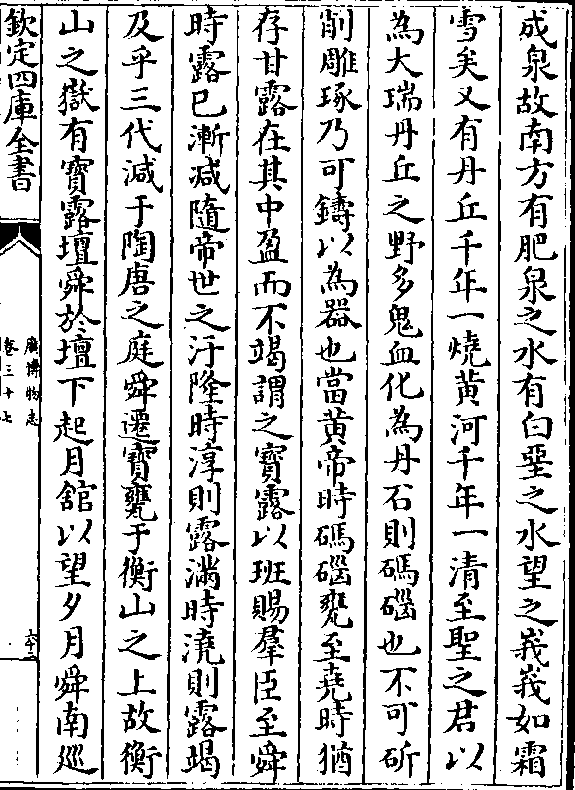 成泉故南方有肥泉之水有白堊之水望之峩峩如霜
雪矣又有丹丘千年一燒黄河千年一清至聖之君以
為大瑞丹丘之野多鬼血化為丹石則碼碯也不可斫
削雕琢乃可鑄以為器也當黄帝時碼碯甕至堯時猶
存甘露在其中盈而不竭謂之寳露以班賜羣臣至舜
時露已漸减隨帝世之汙隆時淳則露滿時澆則露竭
及乎三代减于陶唐之庭舜遷寳甕于衡山之上故衡
山之嶽有寳露壇舜於壇下起月舘以望夕月舜南廵
欽定四庫全書
廣博物志
卷三十七